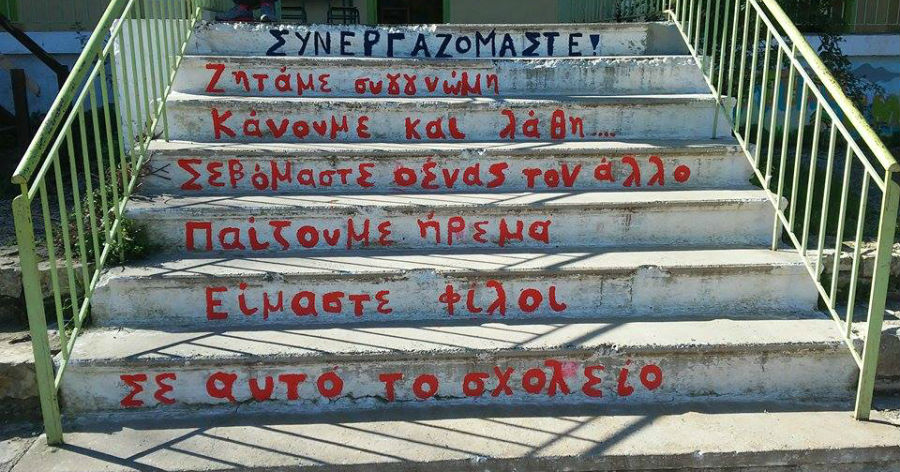 ΣΥΝΕΡΓΑΖΟΜΑΣΤΕ!
Ζητάμε συγγνώμη
Κάνουμε και λάθη...
Σεβόμαστε ο ένας τον άλλο
Παίζουμε ήρεμα
Είμαστε φίλοι
Σε αυτό το σχολείο